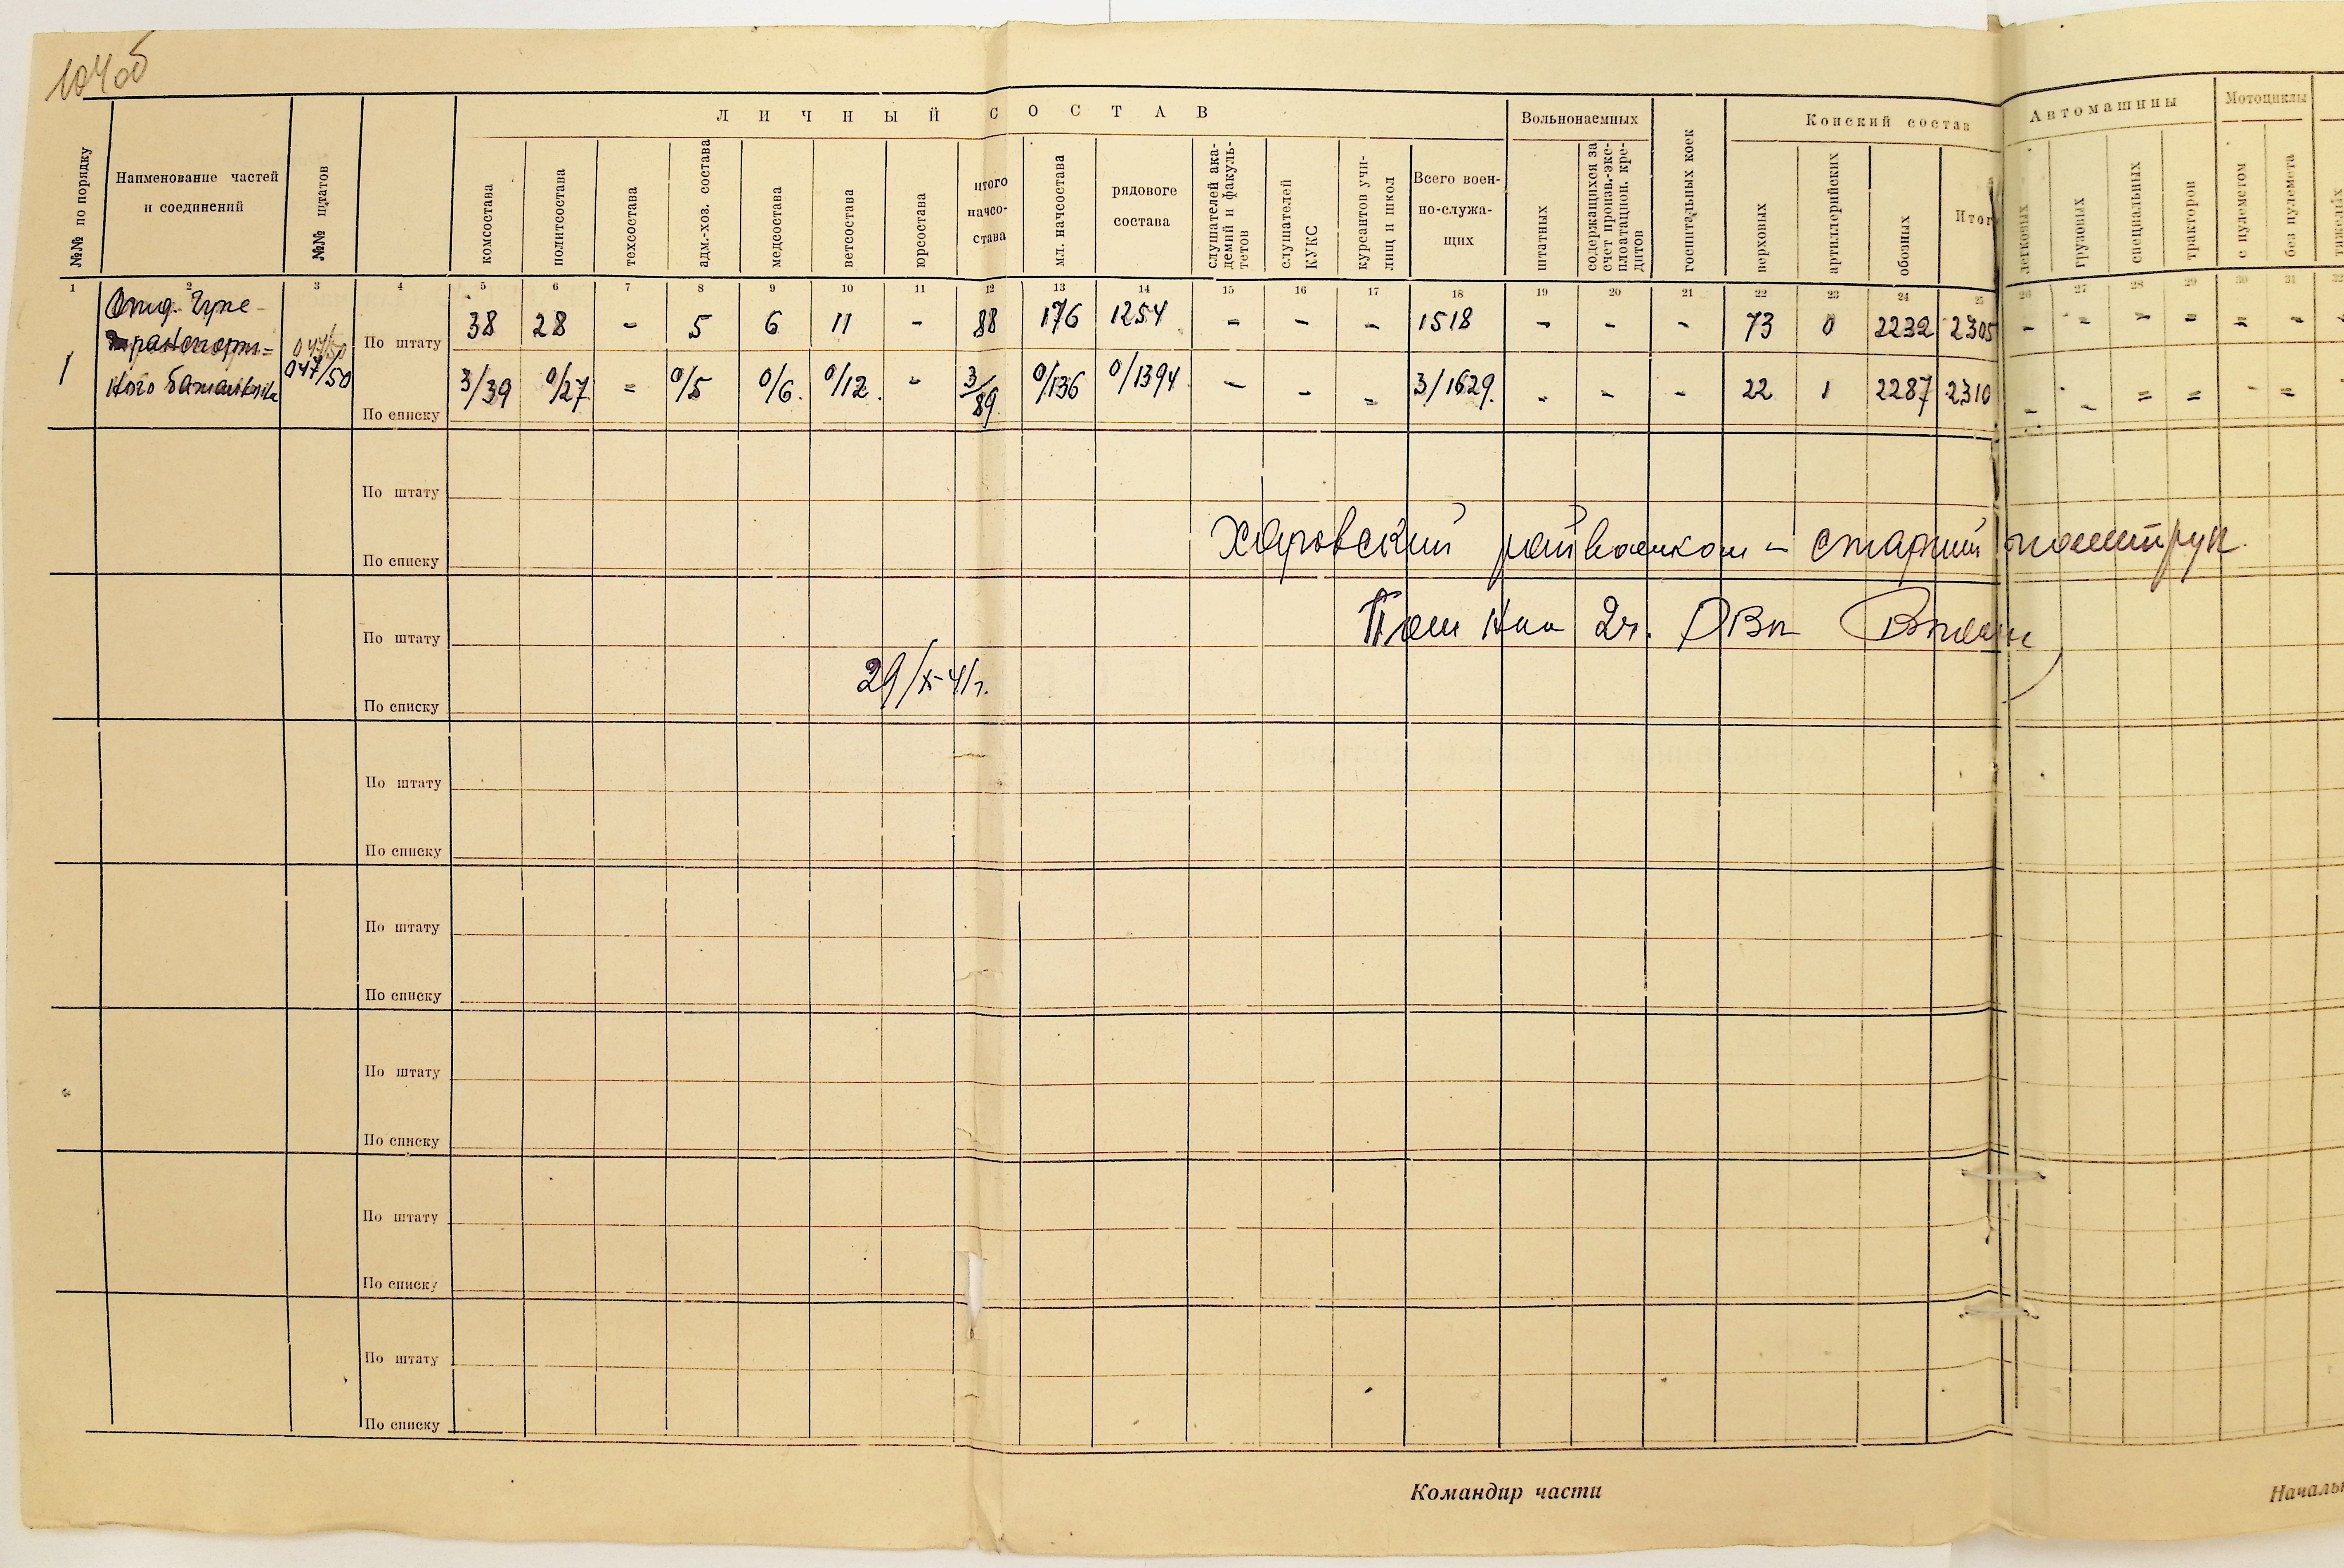 104об
ЛИЧНЫЙ СОСТАВ Вольнонаемных Конский состав Автомашины Мотоциклы
№№ по порядку
Наименование частей и соединений
№№ штатов
комсостава
политсостава
техсостава
адм.-хоз. состава
медсостава
ветсостава
юрсостава
итого начсо-става
мл. начсостава
рядового состава
слушателей ака-демий и факуль-тетов
слушателей КУКС
курсантов учи-лищ и школ
Всего воен-но-служа-щих
штатных
содержащихся за счет произв.-экс-плоатацион. кре-дитов
госпитальных коек
верховых
артиллерийских
обозных
Итог
легковых
грузовых
специальных
тракторов
с пулеметом
без пулемета
тяжелых
1 2 3 4 5 6 7 8 9 10 11 12 13 14 15 16 17 18 19 20 21 22 23 24 25 26 27 28 29 30 31 32
1 Отд. Гуже-транспорт=ного батальона 047/50 047/50
По штату 38 28 - 5 6 11 - 88 176 1254 - - - 1518 - - - 73 0 2232 2305 - - - = = -
По списку 3/39 0/27 = 0/5 0/6. 0/12. - 3/89 0/136 0/1394 - - - 3/1629. - - - 22 1 2287 2310 - - = = - =
По штату
По списку
Харовский райвоенком - старший политрук
По штату
Пом Нач 2ч. РВк
29/X-41г.
По списку
По штату
По списку
По штату
По списку
По штату
По списку
По штату
По списку
По штату
По списку
Командир части Начальн